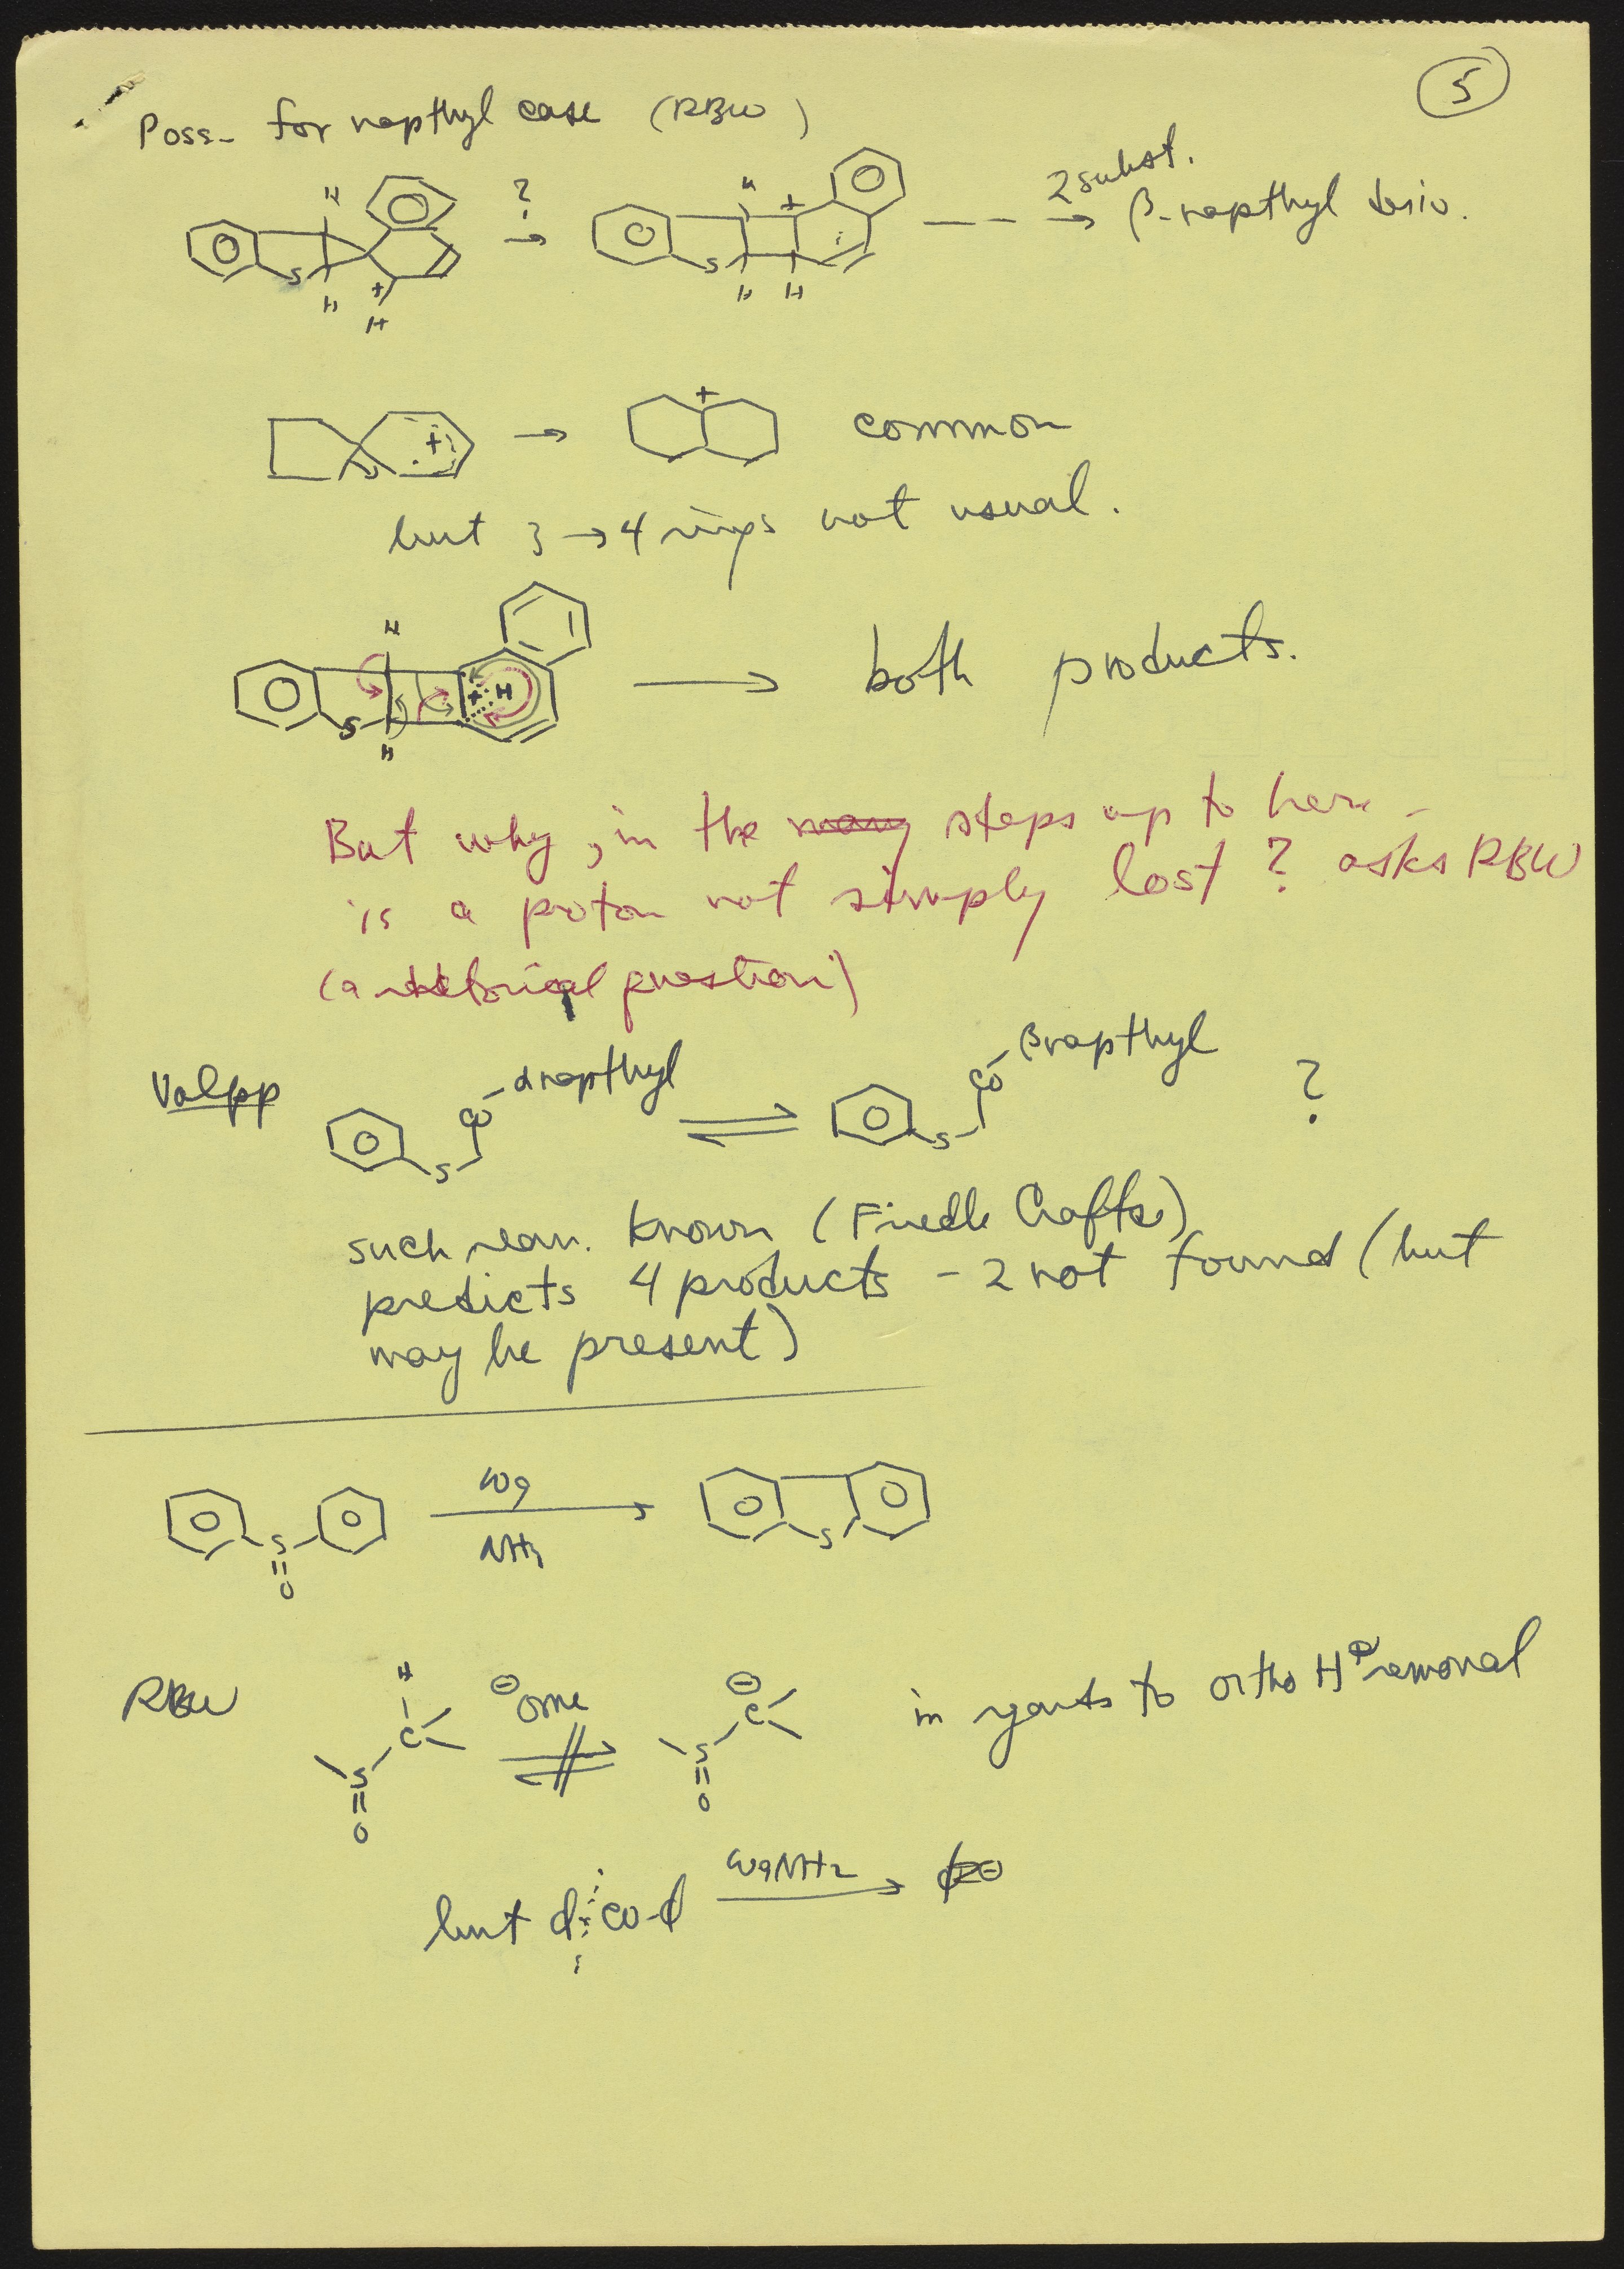 5
Poss- for napthyl case (RBW)
H H + H S
?
H + S H H
2 subst.
β-napthyl deriv.
+
+
common
but 3 → 4 rings not usual.
H S H + H
both products.
But why, in the many steps up to here -
is a proton not simply lost? asks RBW
(a rhetorical question)
Volpp
S CO αnapthyl
S CO βnapthyl
?
such rearr. known (Friedle Crafts)
predicts 4 products - 2 not found (but
may be present)
S O
NH2
S
RBW
H C S O
⊖OMe
⊖ C S O
in regards to ortho H⊕ removal
but φ CO-φ
NaNH2
φ⊖